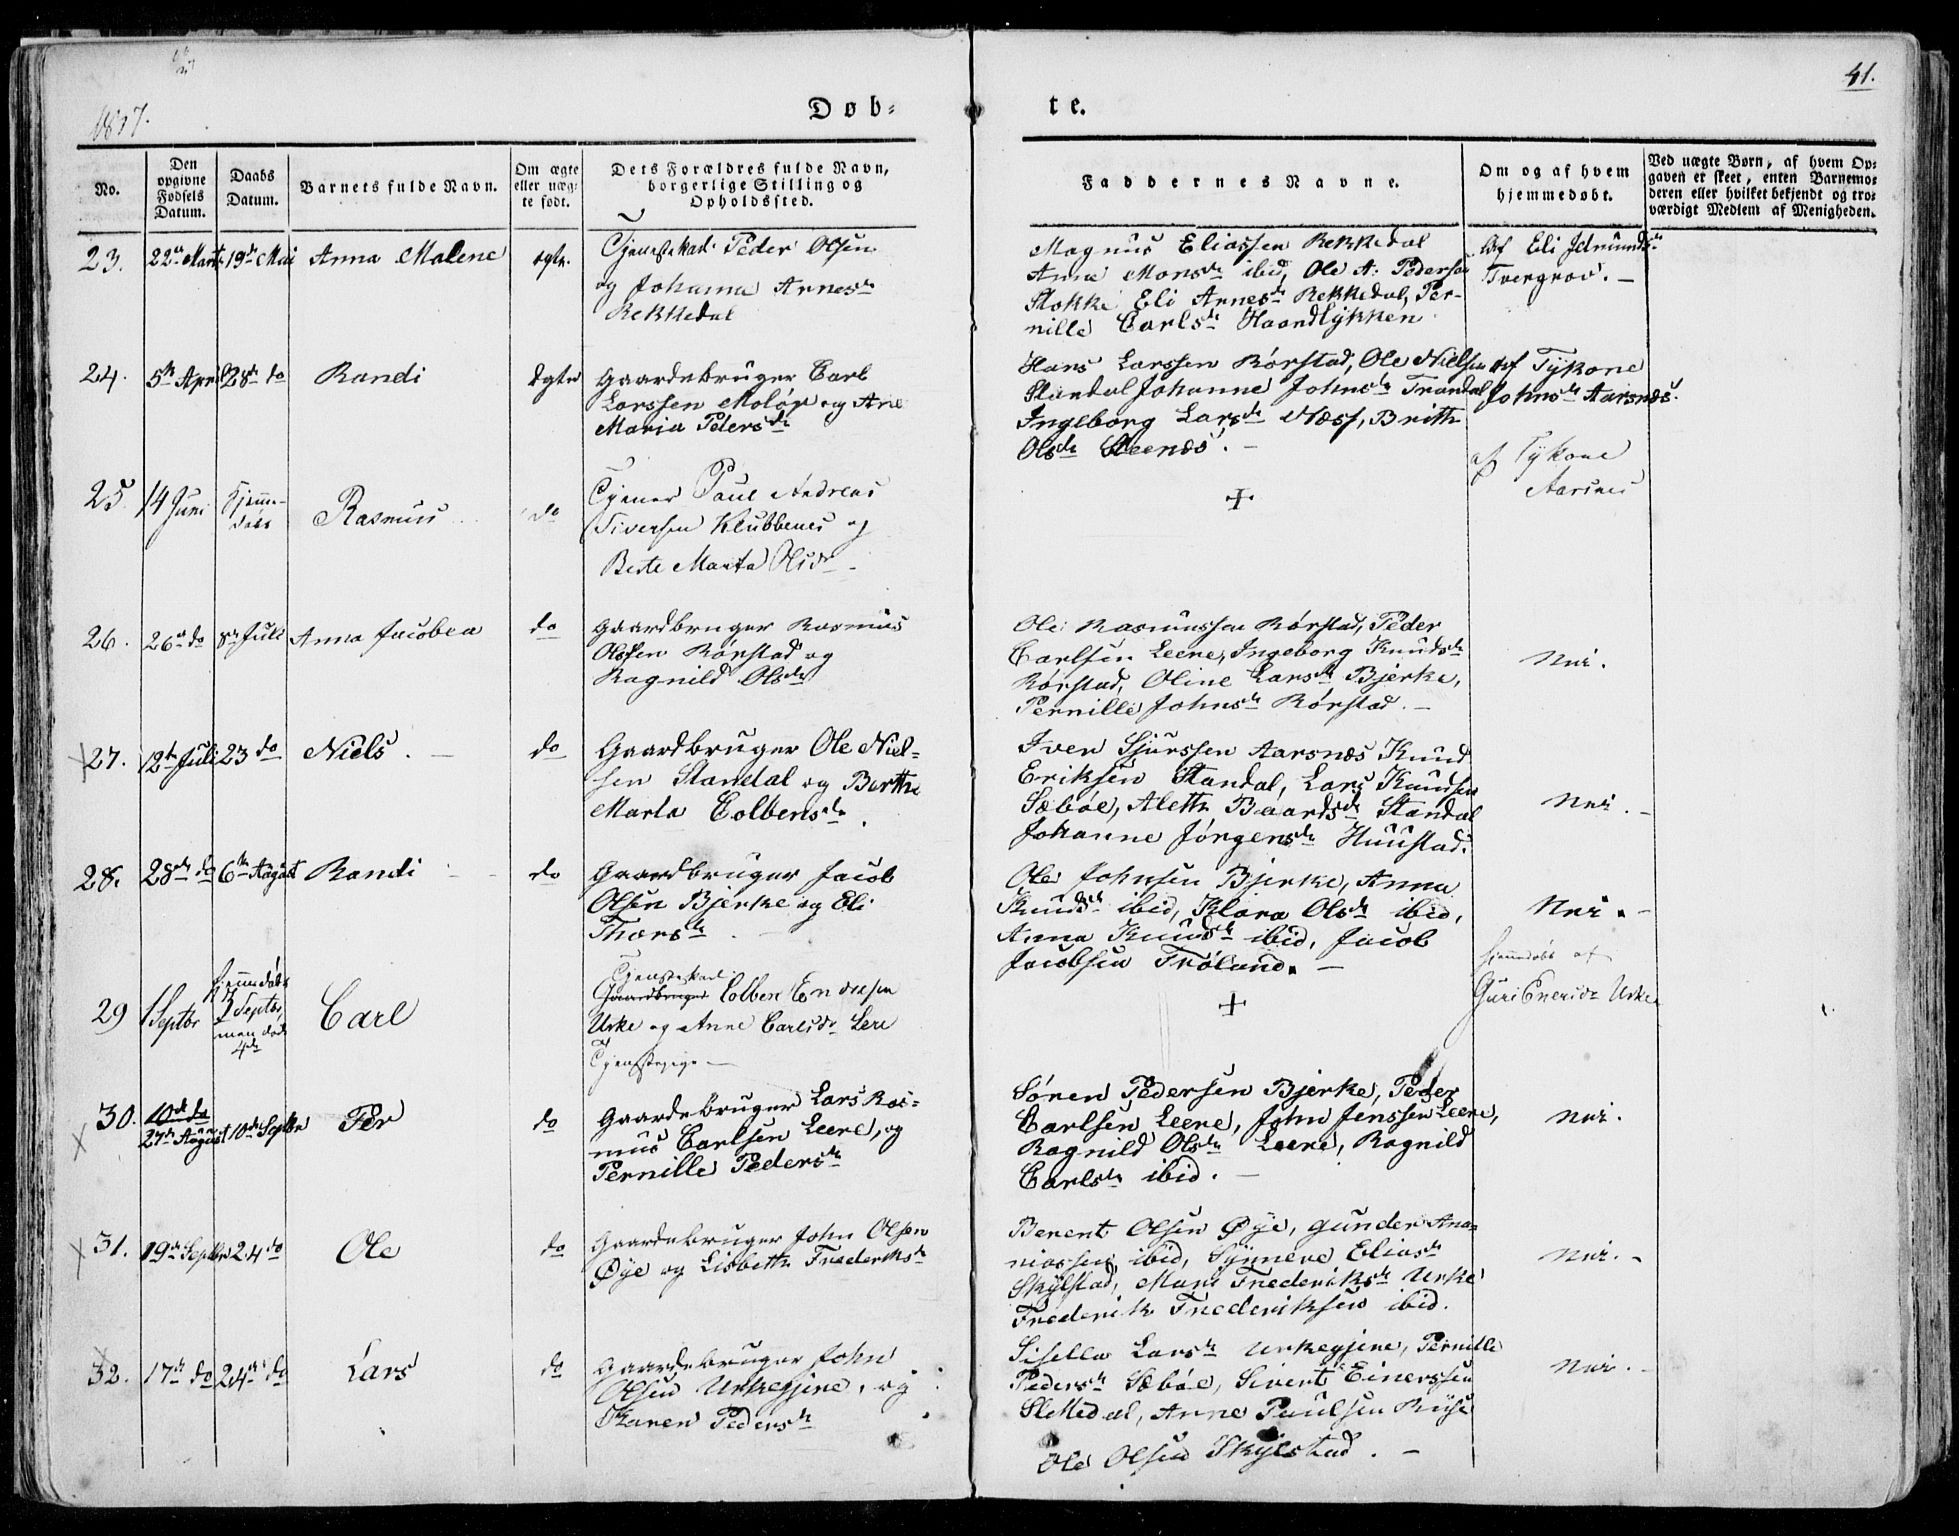 1837.
Døb-
te.
41.
No.
Den opgivne Fødsels Datum.
Daabs Datum.
Barnets fulde Navn.
Om ægte eller uægte født.
Dets Forældres fulde Navn, borgerlige Stilling og Opholdssted.
Faddernes Navne.
Om og af hvem hjemmedøbt.
Ved uægte Børn, af hvem Opgaven er skeet, enten Barnemoderen eller hvilket bekjendt og troværdigt Medlem af Menigheden.
23. 22de Marts 19de Mai Anna Malene ægte.
Tjenestekarl Peder Olsen
og Johanna Arnesdr
Rekkedal
Magnus Eliassen Rekkedal
Anna Monsdr ibid, Ole A. Pedersen
Stokke Eli Arnesdr Rekkedal, Per-
nille Carlsdr Haandlykken
Af Eli Jdmundsdr
Tvergrov. —
24. 5te April 28de do Randi ægte
Gaardebruger Carl
Larssen Moløp og Ane
Maria Pedersdr
Hans Larssen Rørstad, Ole Nielsen
Standal Johanne Johnsdr Trandal
Ingeborg Larsdr Næss, Brith
Olsdr Steenæs. —
Af Tykone
Johnsdr Aarsnæs.
25. 14 Juni Hjemme-
døbt Rasmus do
Tjener Paul Andreas
Siversen Klubbenes og
Berte Marta Olsdr
+
af Tykone
Aarsnes
26. 26de do 8de Juli Anna Jacobea do
Gaardbruger Rasmus
Olssen Rørstad og
Ragnild Olsdr
Ole Rasmussen Rørstad, Peder
Carlsen Leere, Ingeborg Knudsdr
Rørstad, Oline Larsdr Bjerke,
Pernille Johnsdr Rørstad. —
Nei.
27. 12te Juli 23 do Niels. — do
Gaardbruger Ole Niel-
sen Standal og Berthe
Marta Colbensdr.
Iver Sjurssen Aarsnæs Knud
Eriksen Standal, Lars Knudsen
Sæbøe, Alethe Baardsdr Standal
Johanne Jørgensdr Huustad.
Nei. —
28. 28de do 6te August Randi do
Gaardbruger Jacob
Olsen Bjerke og Eli
Thorsdr
Ole Johnsen Bjerke, Anna
Knudsdr ibid, Klara Olsdr ibid,
Anna Knudsdr ibid, Jacob
Jacobsen Trøland. —
Nei. —
29 1 Septbr hjemmedøbt
3 Septbr,
men død
4de Carl
Tjenestekarl
Gaardbruger Colben Endresen
Urke og Anne Carlsdr Lere
Tjenestepige —
+
hjemmedøbt af
Guri Enersdr Urke
30. 10de do
27de August 10de Septbr Per do
Gaardebruger Lars Ras-
mus Carlsen Leere, og
Pernille Pedersdr
Sören Pedersen Bjerke, Peder
Carlsen Leere, John Jenssen Leere,
Ragnild Olsdr Leere, Ragnild
Carlsdr ibid. —
Nei.
31. 19de Septbr 24 do Ole do
Gaardebruger John Olsen
Øye og Lisbeth Frederiksdr
Berent Olsen Øye, Gunder Ana-
niassen ibid, Synneve Eliasdr
Skylstad, Mari Frederiksdr Urke
Frederik Frederiksen ibid.
Nei. —
32. 17de do 24de do Lars do
Gaardebruger John
Olsen Urkegjerde, og
Karen Pedersdr
Sisella Larsdr Urkegjerde, Pernille
Pedersdr Sæbøe, Sivert Einerssen
Slettedal, Arne Paulsen
Ole Olsen Skylstad. —
Nei. —